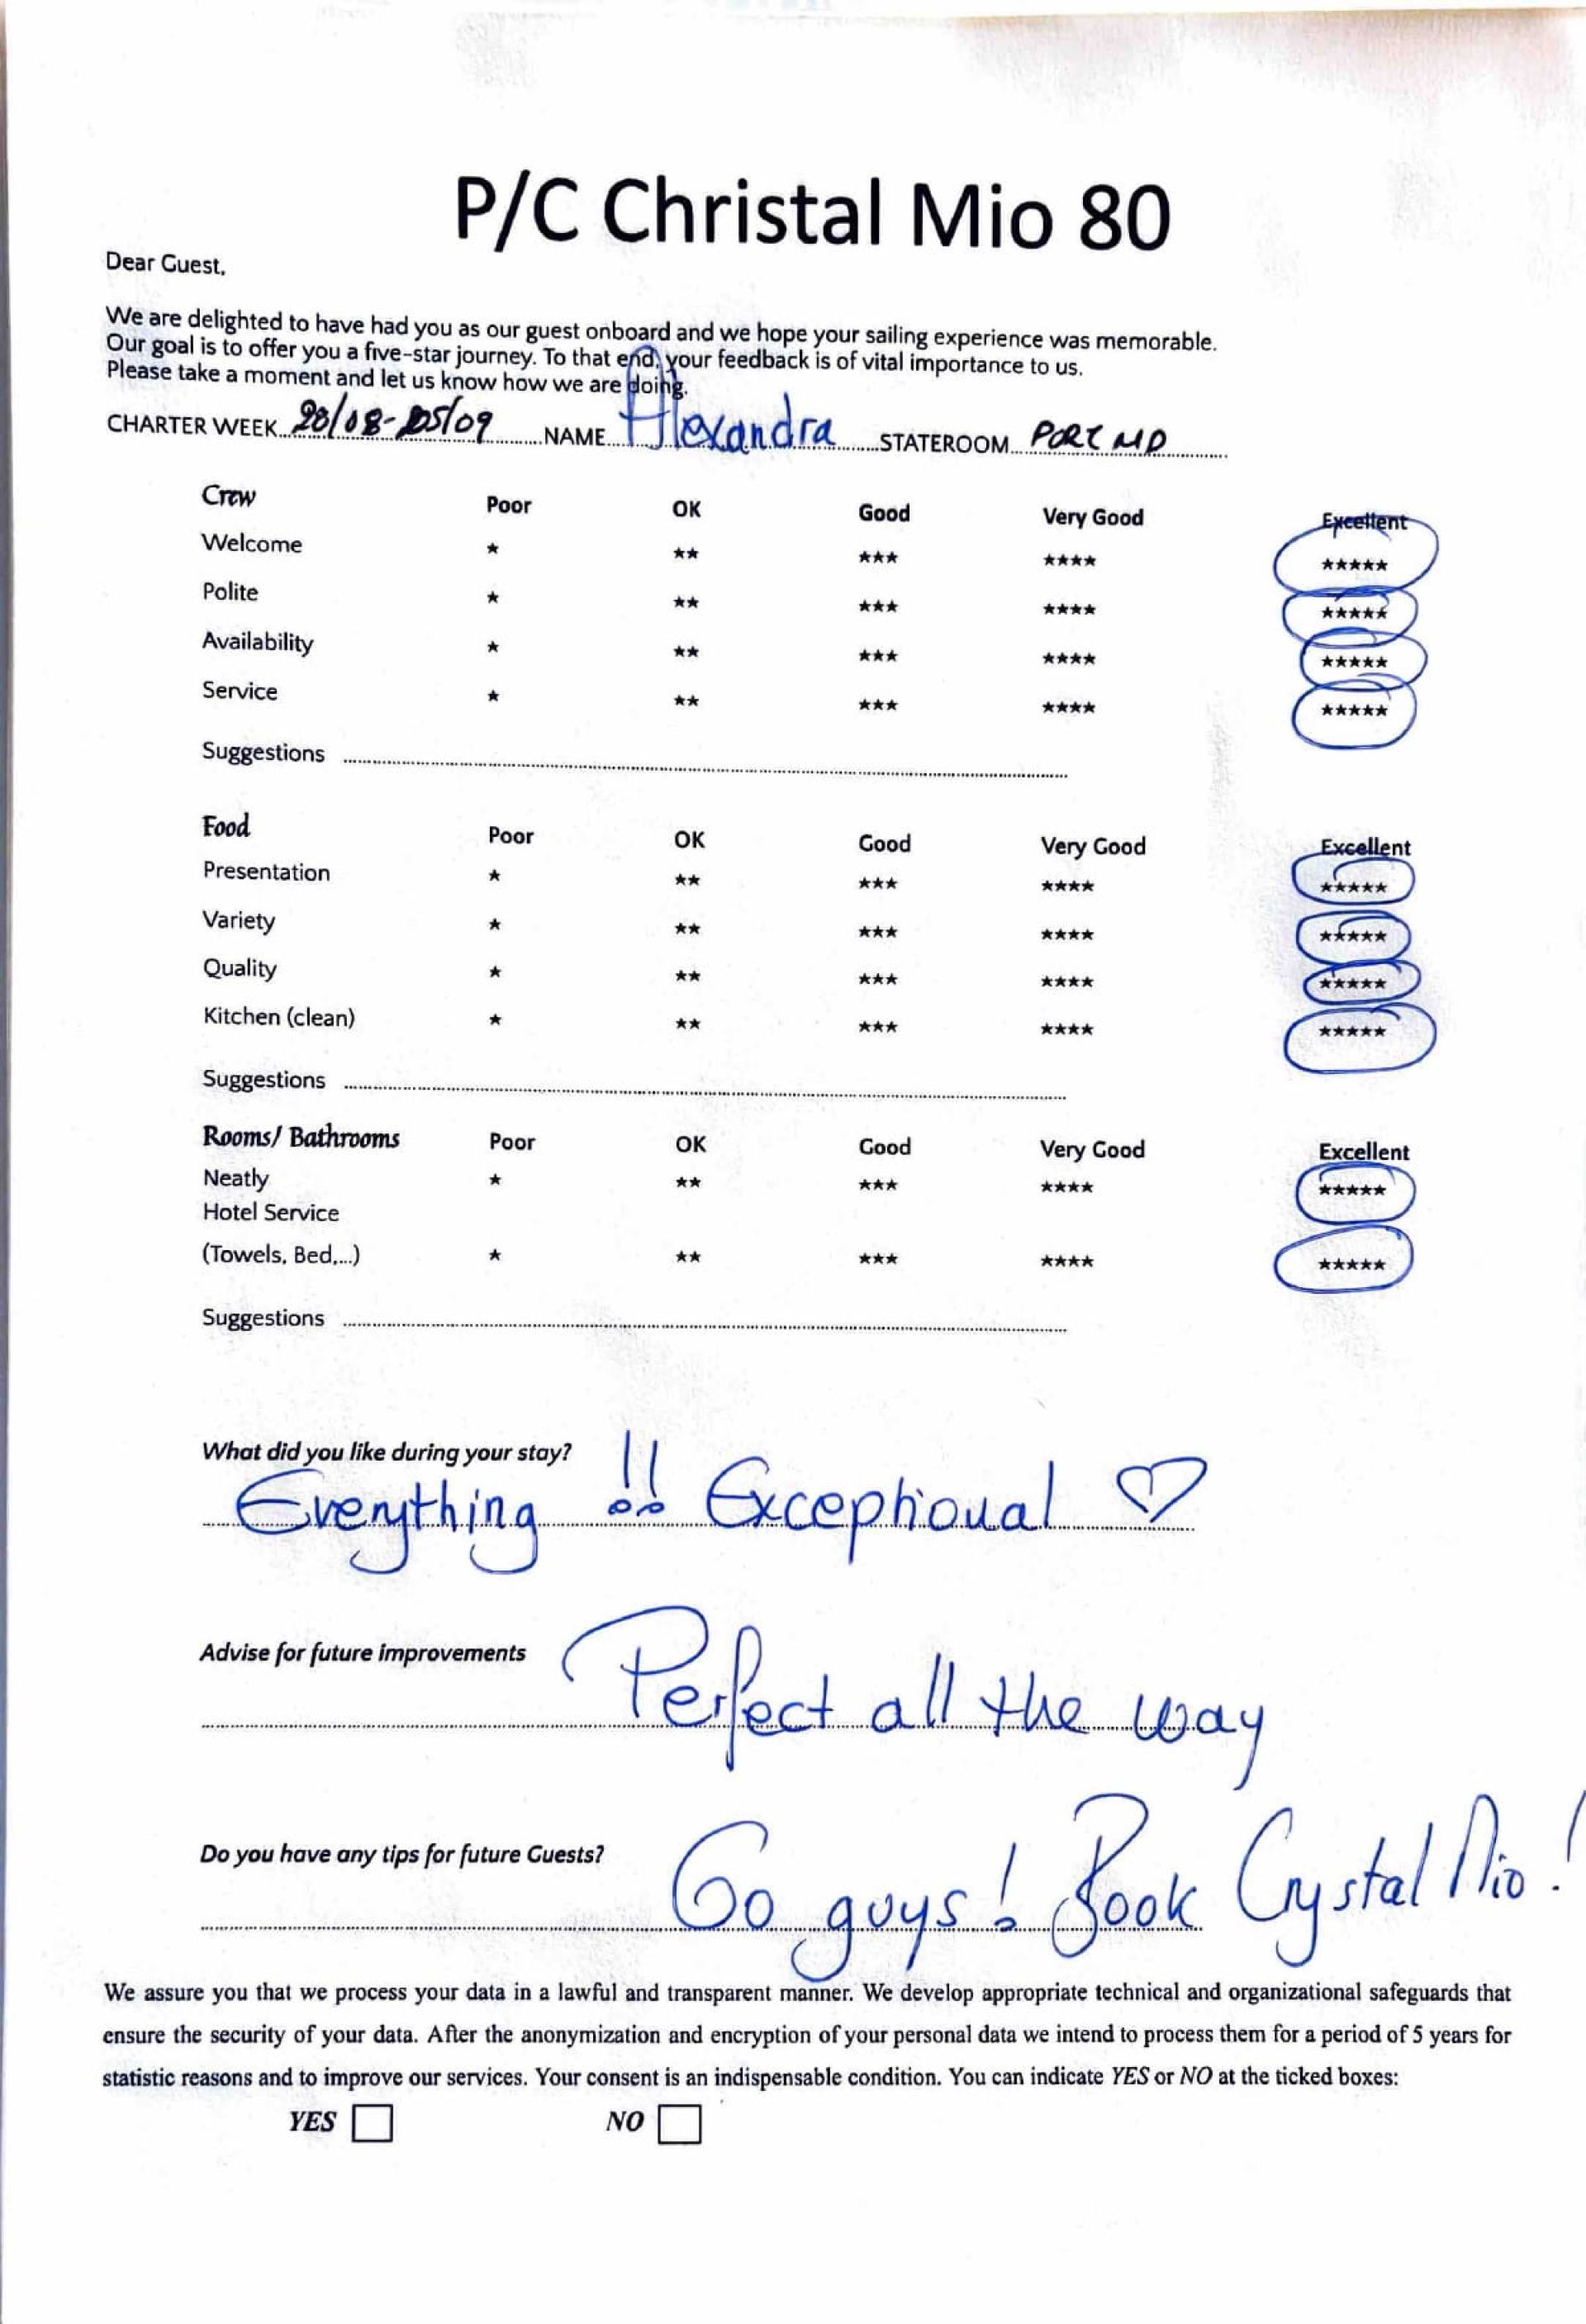 P/C Christal Mio 80
Dear Guest,
We are delighted to have had you as our guest onboard and we hope your sailing experience was memorable.
Our goal is to offer you a five-star journey. To that end, your feedback is of vital importance to us.
Please take a moment and let us know how we are doing.
CHARTER WEEK 28/08-05/09 NAME Alexandra STATEROOM PORT MD
Crew Poor OK Good Very Good Excellent
Welcome ★ ★★ ★★★ ★★★★ ★★★★★
Polite ★ ★★ ★★★ ★★★★ ★★★★★
Availability ★ ★★ ★★★ ★★★★ ★★★★★
Service ★ ★★ ★★★ ★★★★ ★★★★★
Suggestions
Food Poor OK Good Very Good Excellent
Presentation ★ ★★ ★★★ ★★★★ ★★★★★
Variety ★ ★★ ★★★ ★★★★ ★★★★★
Quality ★ ★★ ★★★ ★★★★ ★★★★★
Kitchen (clean) ★ ★★ ★★★ ★★★★ ★★★★★
Suggestions
Rooms/ Bathrooms Poor OK Good Very Good Excellent
Neatly ★ ★★ ★★★ ★★★★ ★★★★★
Hotel Service
(Towels, Bed,...) ★ ★★ ★★★ ★★★★ ★★★★★
Suggestions
What did you like during your stay?
Everything !! Exceptional ♡
Advise for future improvements
Perfect all the way
Do you have any tips for future Guests?
Go guys! Book Crystal Mio!
We assure you that we process your data in a lawful and transparent manner. We develop appropriate technical and organizational safeguards that
ensure the security of your data. After the anonymization and encryption of your personal data we intend to process them for a period of 5 years for
statistic reasons and to improve our services. Your consent is an indispensable condition. You can indicate YES or NO at the ticked boxes:
YES NO